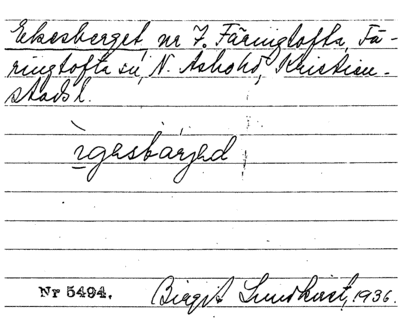 Ekesberget, nr 7. Färingtofta, Fä-
ringtofta sn, N. Åsbohd, Kristian-
stads l.
ìgəsbárjəd
Nr 5494. Birgit Lundkvist, 1936.